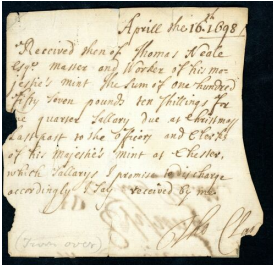 Aprill the 16th 1698
Received then of Thomas Neale
Esqr master and Worder of his ma
jestie's mint the Sum of one hundred
fifty Seven pounds ten Shillings for
the quarter Sallary due at Christmas
Last past to the officers and Clerks
of his Majestie's mint at Chester,
which Sallarys I promise to discharge
accordingly I Say received by me
(Turn over)